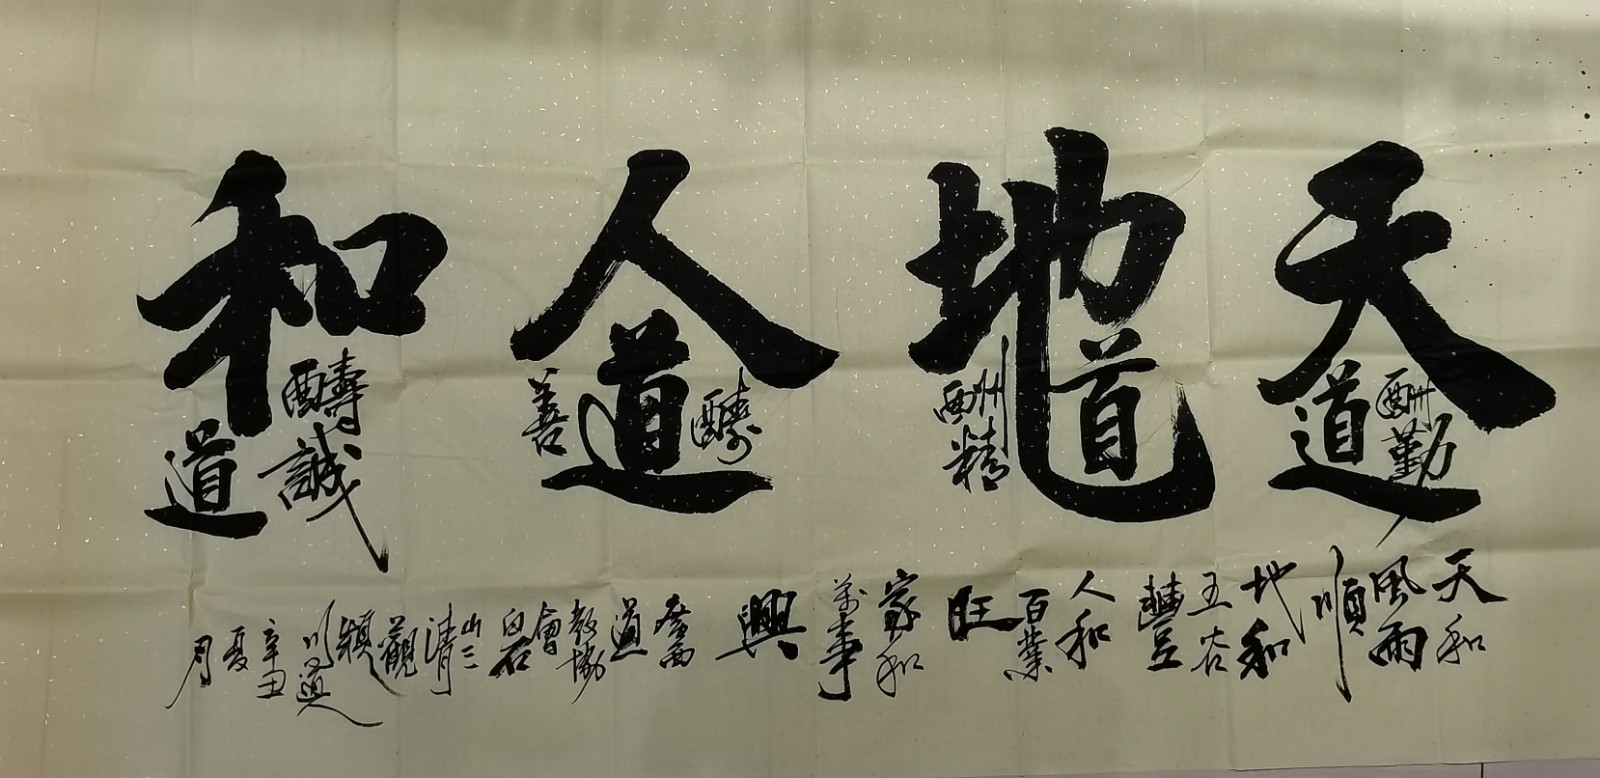 天道酬勤
地道酬精
人道醻善
和道醻誠
天和
風雨
順
地和
五谷
豐
人和
百業
旺
家和
萬事
興
廣西
道
教協
會
白石
山三
清
觀
穎
川道人
辛丑
夏
月